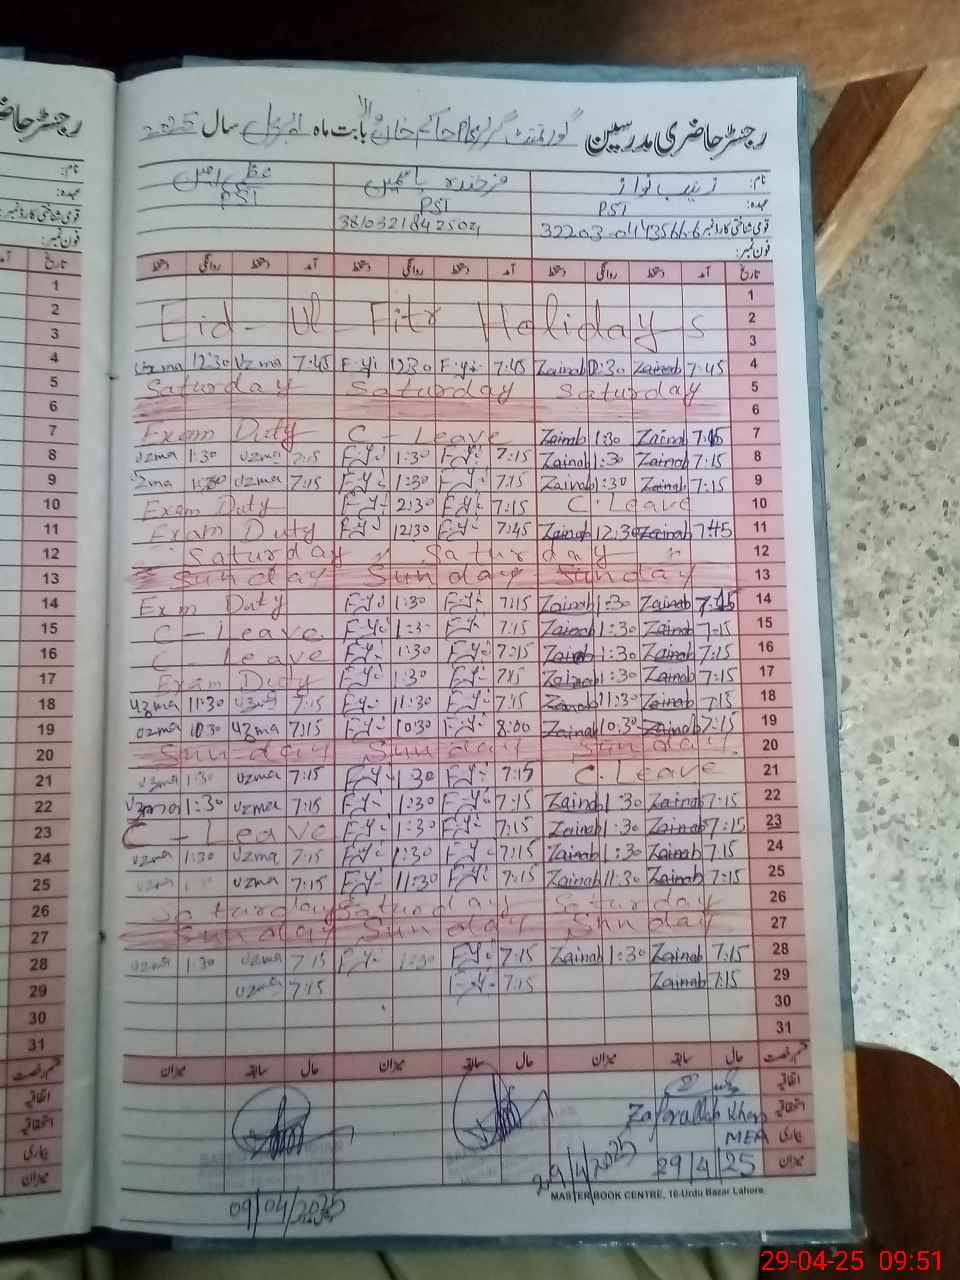 رجسٹر حاضری مدرسین گورنمنٹ گرلز حاکم خان والا بابت ماہ اپریل سال 2025
نام: زینب نواز فرخندہ یاسمین عظمیٰ
عہدہ: PST PST PST
قومی شناختی کارڈ نمبر 32203-0 38103218425
فون نمبر:
تاریخ آمد دستخط روانگی دستخط آمد دستخط روانگی دستخط آمد دستخط روانگی دستخط تاریخ
1 1
2 Eid-Ul-Fitr Holidays 2
3 3
4 Uzma 12:30 Uzma 7:45 F.Y 12:30 F.Y 7:45 Zainab 12:30 Zainab 7:45 4
5 Saturday Saturday Saturday 5
6 6
7 Exam Duty C-Leave Zainab 1:30 Zainab 7:15 7
8 Uzma 1:30 Uzma 7:15 F.Y 1:30 F.Y 7:15 Zainab 1:30 Zainab 7:15 8
9 Uzma 1:30 Uzma 7:15 F.Y 1:30 F.Y 7:15 Zainab 1:30 Zainab 7:15 9
10 Exam Duty F.Y 2:30 F.Y 7:15 C.Leave 10
11 Exam Duty F.Y 12:30 F.Y 7:45 Zainab 12:30 Zainab 7:45 11
12 Saturday Saturday 12
13 Sunday Sunday Sunday 13
14 Exam Duty F.Y 1:30 F.Y 7:15 Zainab 1:30 Zainab 7:15 14
15 C-Leave F.Y 1:3 F.Y 7:15 Zainab 1:30 Zainab 7:15 15
16 C-Leave F.Y 1:30 F.Y 7:15 Zainab 1:30 Zainab 7:15 16
17 Exam Duty F.Y 1:30 F.Y Zainab 1:30 Zainab 7:15 17
18 Uzma 11:30 Uzma 7:15 F.Y 11:30 F.Y 7:15 Zainab 11:30 Zainab 7:15 18
19 Uzma 10:30 Uzma 7:15 F.Y 10:30 F.Y 8:00 Zainab 10:30 Zainab 7:15 19
20 Sunday Sunday Sunday 20
21 Uzma 1:30 Uzma 7:15 F.Y 1:30 F.Y 7:15 C.Leave 21
22 Uzma 1:30 Uzma 7:15 F.Y 1:30 F.Y 7:15 Zainab 1:30 Zainab 7:15 22
23 C-Leave F.Y 1:30 F.Y 7:15 Zainab 1:30 Zainab 7:15 23
24 Uzma 1:30 Uzma 7:15 F.Y 1:30 F.Y 7:15 Zainab 1:30 Zainab 7:15 24
25 Uzma 7:15 F.Y 11:30 F.Y 7:15 Zainab 11:30 Zainab 7:15 25
26 Saturday Saturday Saturday 26
27 Sunday Sunday Sunday 27
28 Uzma 1:30 Uzma 7:15 F.Y 1:30 F.Y 7:15 Zainab 1:30 Zainab 7:15 28
29 Uzma 7:15 F.Y 7:15 Zainab 7:15 29
30 30
31 31
قسم رخصت حال سابقہ میزان حال سابقہ میزان حال سابقہ میزان قسم رخصت
اتفاقیہ
استحقاقیہ Zafarullah Khan
بیماری MEA
میزان 29/4/25
29/4/2025
09/04/2025
MASTER BOOK CENTRE, 16-Urdu Bazar Lahore
29-04-25 09:51